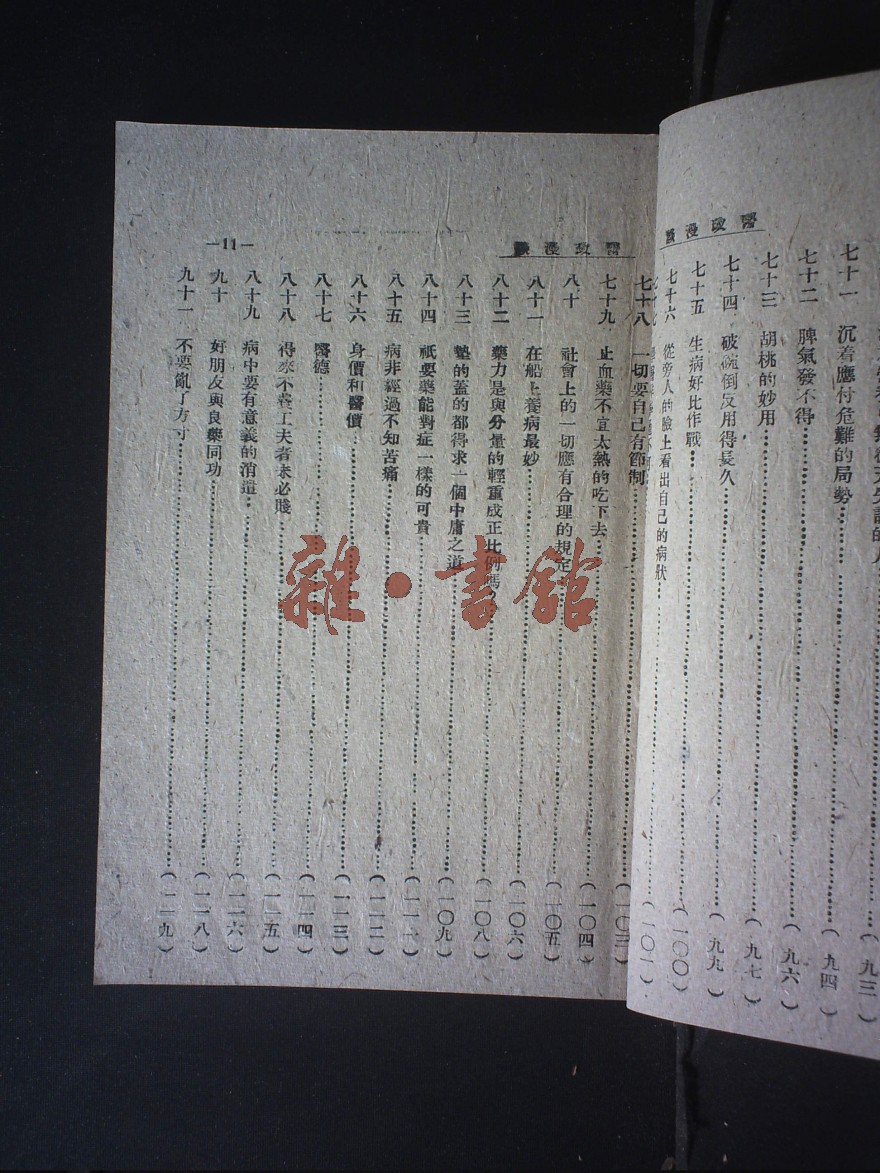 醫政漫談
(九三)
七十一 沉着應付危難的局勢……(九四)
七十二 脾氣發不得……(九六)
七十三 胡桃的妙用……(九七)
七十四 破碗倒反用得長久……(九九)
七十五 生病好比作戰……(一〇〇)
七十六 從旁人的臉上看出自己的病狀……(一〇一)
醫政漫談
七十八 一切要自己有節制……(一〇三)
七十九 止血藥不宜太熱的吃下去……(一〇四)
八十 社會上的一切應有合理的規定……(一〇五)
八十一 在船上養病最妙……(一〇六)
八十二 藥力是與分量的輕重成正比例嗎?……(一〇八)
八十三 墊的蓋的都得求一個中庸之道……(一〇九)
八十四 祇要藥能對症一樣的可貴……(一一一)
八十五 病非經過不知苦痛……(一一二)
八十六 身價和醫價……(一一三)
八十七 醫德……(一一四)
八十八 得來不費工夫者未必賤……(一一五)
八十九 病中要有意義的消遣……(一一六)
九十 好朋友與良藥同功……(一一八)
九十一 不要亂了方寸……(一一九)
—11—
雜·書館